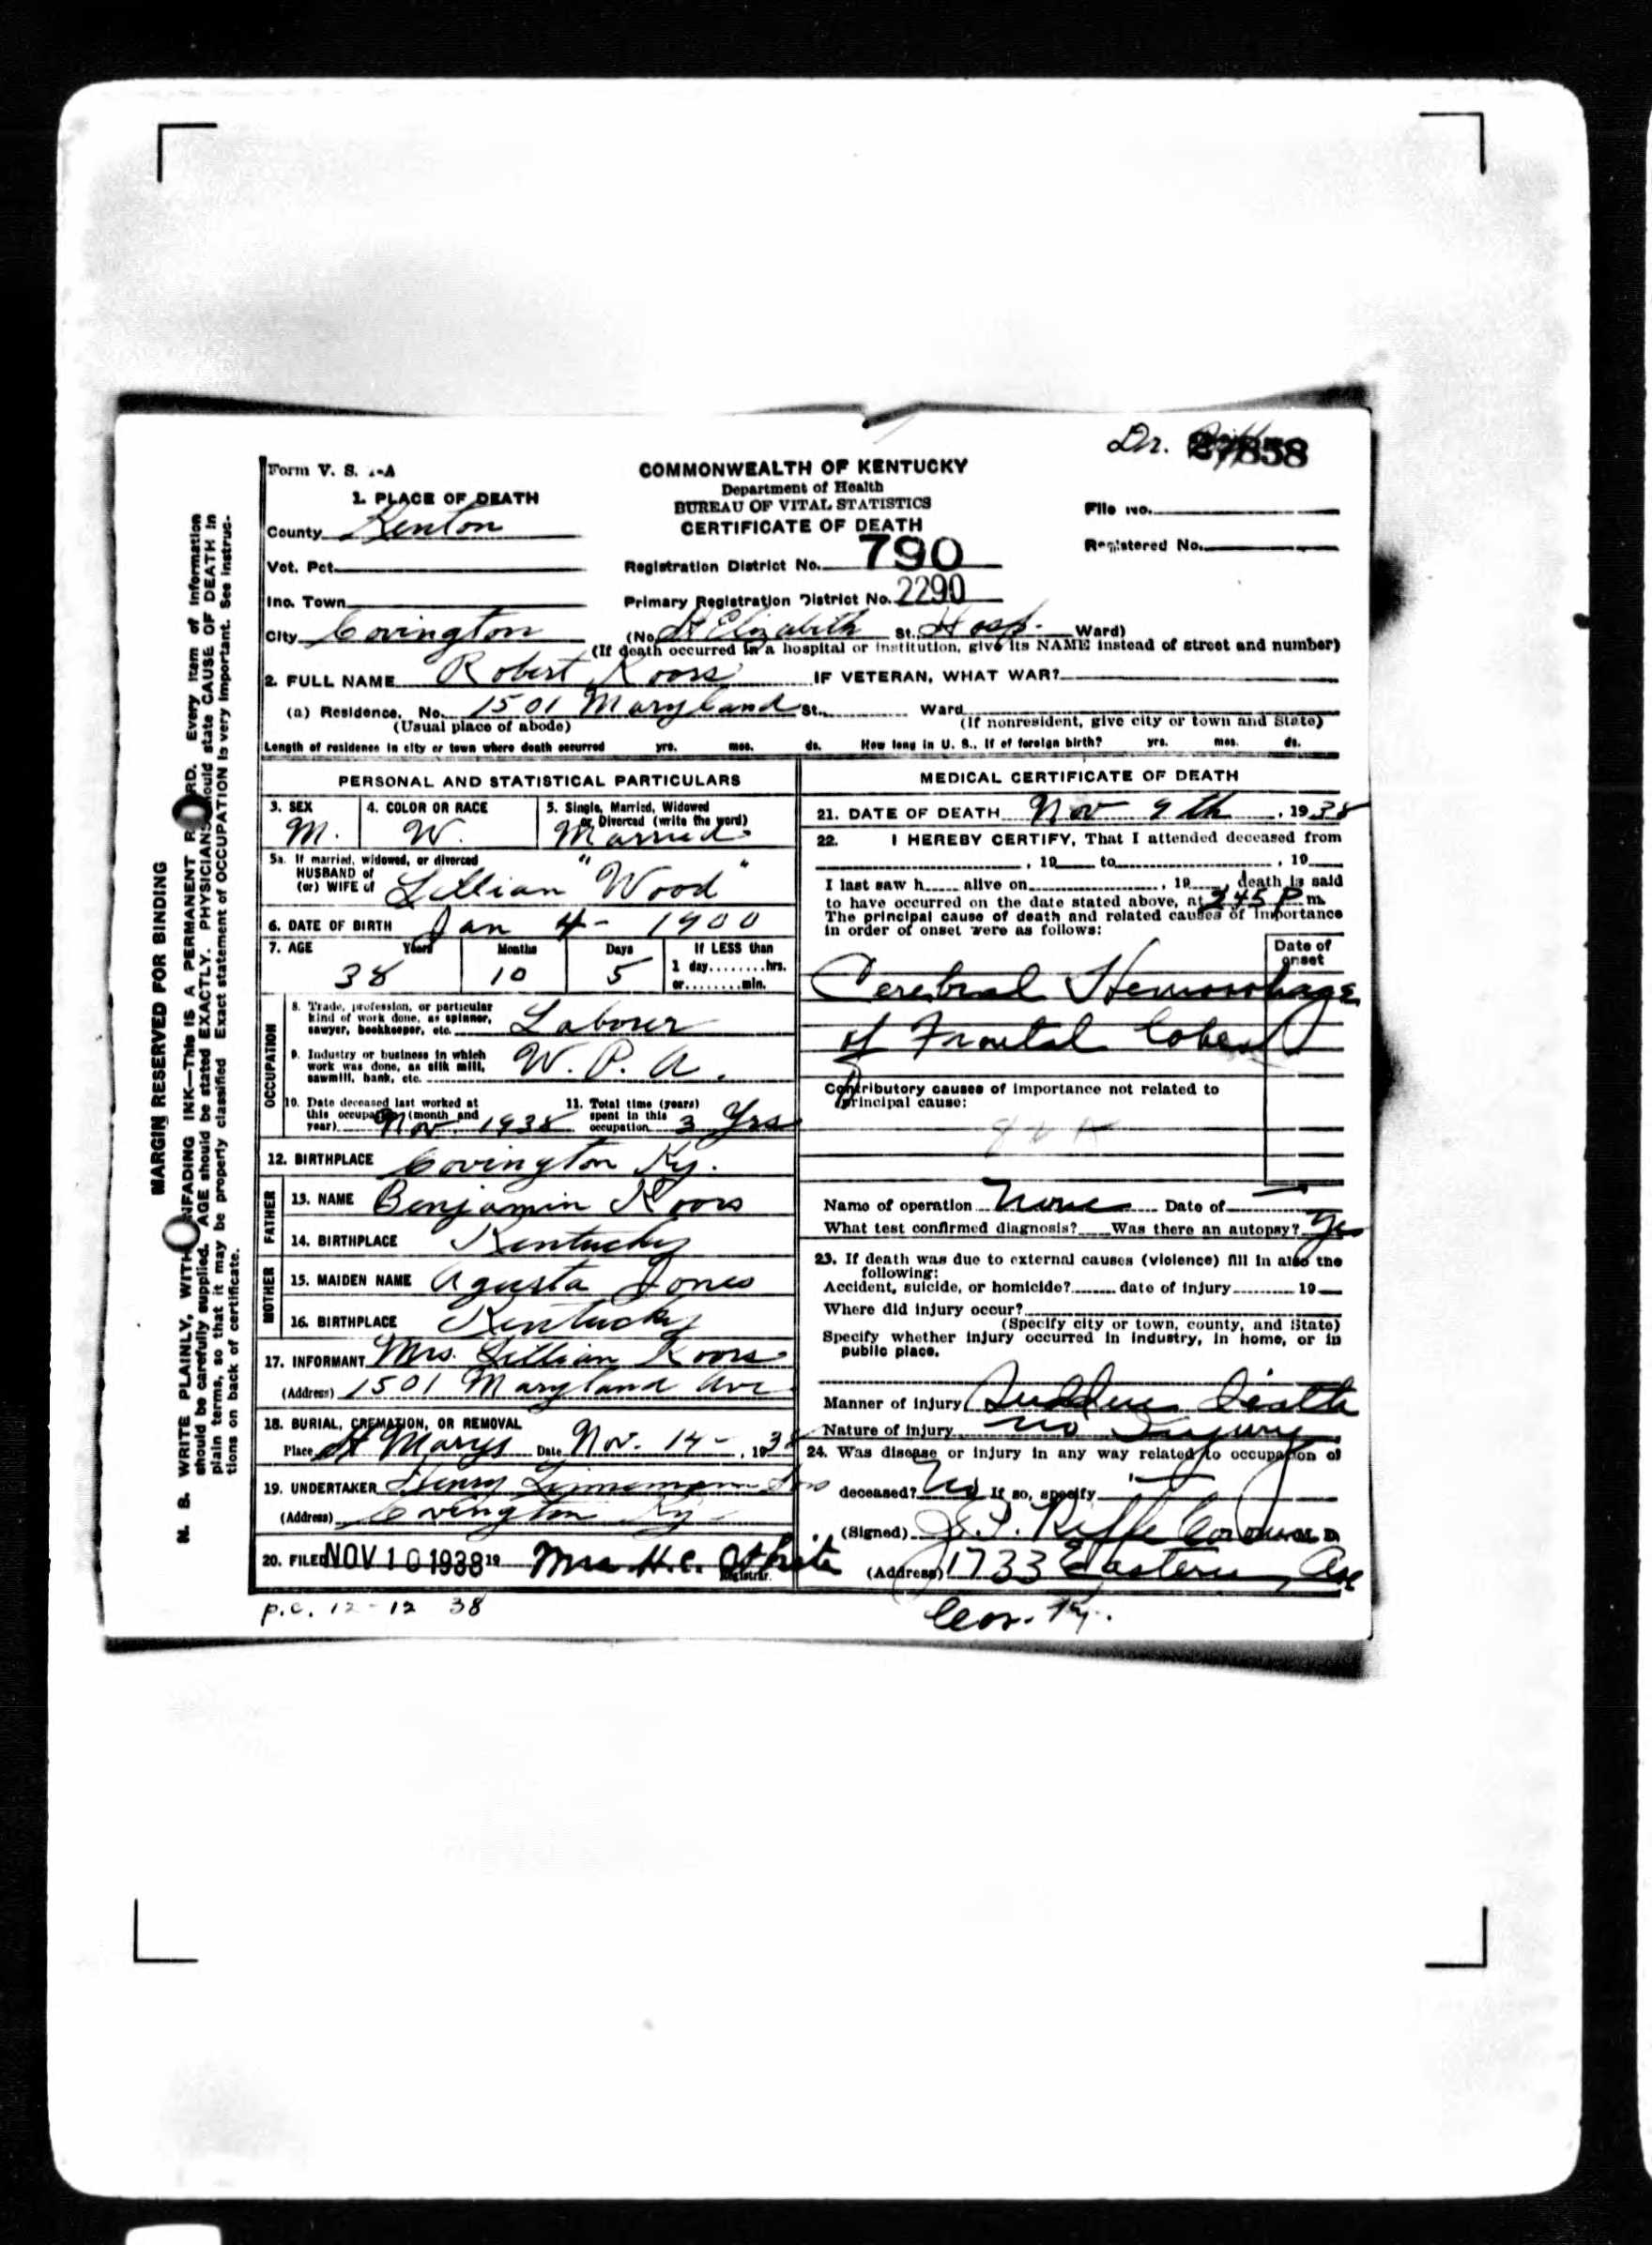 Dr. 27858
Form V. S. 1-A
COMMONWEALTH OF KENTUCKY
Department of Health
BUREAU OF VITAL STATISTICS
CERTIFICATE OF DEATH
File No.
Registered No.
1. PLACE OF DEATH
County Kenton
Vot. Pct.
Registration District No. 790
Inc. Town
Primary Registration District No. 2290
City Covington (No. St Elizabeth St. Hosp. Ward)
(If death occurred in a hospital or institution, give its NAME instead of street and number)
2. FULL NAME Robert Koors IF VETERAN, WHAT WAR?
(a) Residence. No. 1501 Maryland St. Ward
(Usual place of abode) (If nonresident, give city or town and State)
Length of residence in city or town where death occurred yrs. mos. ds. How long in U. S., if of foreign birth? yrs. mos. ds.
PERSONAL AND STATISTICAL PARTICULARS
3. SEX 4. COLOR OR RACE 5. Single, Married, Widowed
or Divorced (write the word)
M. W. Married
5a. If married, widowed, or divorced
HUSBAND of
(or) WIFE of Lillian "Wood"
6. DATE OF BIRTH Jan 4 - 1900
7. AGE Years Months Days If LESS than
38 10 5 1 day........hrs.
or........min.
OCCUPATION
8. Trade, profession, or particular
kind of work done, as spinner,
sawyer, bookkeeper, etc. Laborer
9. Industry or business in which
work was done, as silk mill,
sawmill, bank, etc. W. P. A.
10. Date deceased last worked at
this occupation (month and
year) Nov. 1938
11. Total time (years)
spent in this
occupation 3 Yrs
12. BIRTHPLACE Covington Ky.
FATHER
13. NAME Benjamin Koors
14. BIRTHPLACE Kentucky
MOTHER
15. MAIDEN NAME Agusta Jones
16. BIRTHPLACE Kentucky
17. INFORMANT Mrs. Lillian Koors
(Address) 1501 Maryland Ave
18. BURIAL, CREMATION, OR REMOVAL
Place St Marys Date Nov. 14 - , 1938
19. UNDERTAKER Henry Linnemann Sons
(Address) Covington Ky
20. FILED NOV 10 1938 19 Mrs H.C. White
Registrar.
P.C. 12-12 38
MEDICAL CERTIFICATE OF DEATH
21. DATE OF DEATH Nov 9th , 1938
22. I HEREBY CERTIFY, That I attended deceased from
, 19 to , 19
I last saw h alive on , 19 , death is said
to have occurred on the date stated above, at 245 P m.
The principal cause of death and related causes of importance
in order of onset were as follows:
Date of
onset
Cerebral Hemorrhage
of Frontal Lobes
Contributory causes of importance not related to
principal cause:
Name of operation None Date of
What test confirmed diagnosis? Was there an autopsy? Yes
23. If death was due to external causes (violence) fill in also the
following:
Accident, suicide, or homicide? date of injury 19
Where did injury occur?
(Specify city or town, county, and State)
Specify whether injury occurred in industry, in home, or in
public place.
Manner of injury Sudden Death
Nature of injury no Injury
24. Was disease or injury in any way related to occupation of
deceased? No If so, specify
(Signed) J.P. Riffe Coroner M. D.
(Address) 1733 Eastern Ave
Cov. Ky.
MARGIN RESERVED FOR BINDING
N. B. WRITE PLAINLY, WITH UNFADING INK—THIS IS A PERMANENT RECORD. Every item of information
should be carefully supplied. AGE should be stated EXACTLY. PHYSICIANS should state CAUSE OF DEATH in
plain terms, so that it may be properly classified Exact statement of OCCUPATION is very important. See instruc-
tions on back of certificate.